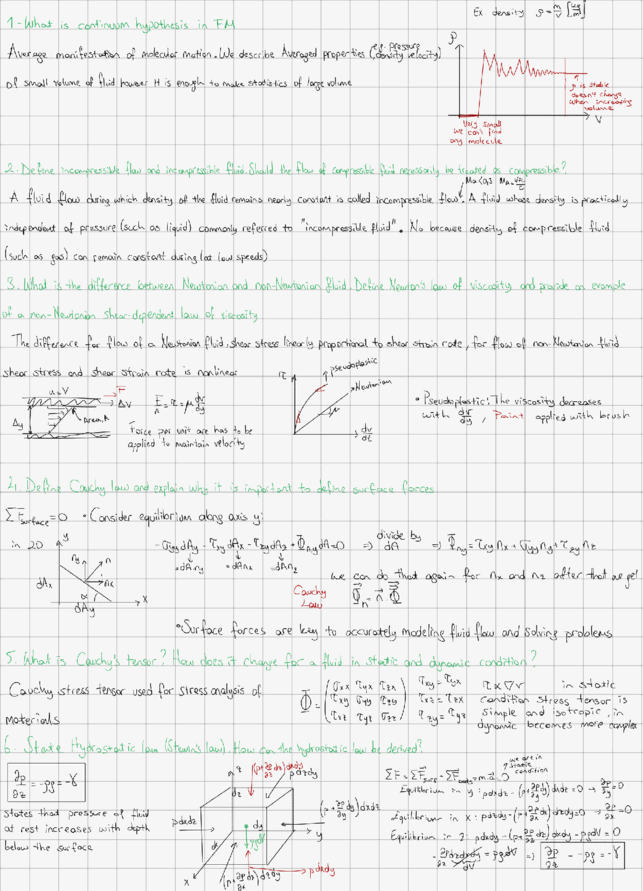 1-What is continuum hypothesis in FM
Ex density ρ = m/V
Average manifestation of molecular motion. We describe Averaged properties (density, velocity)
e.g. pressure
Of small volume of fluid however it is enough to make statistics of large volume
ρ
ρ is stable
doesn't change
when increasing
volume
V
Very small
we can't find
any molecule
2. Define incompressible flow and incompressible fluid. Should the flow of compressible fluid necessarily be treated as compressible?
Ma<0,3
A fluid flow during which density of the fluid remains nearly constant is called incompressible flow. A fluid whose density is practically
independent of pressure (such as liquid) commonly referred to "incompressible fluid". No because density of compressible fluid
(such as gas) can remain constant during (at low speeds)
3. What is the difference between Newtonian and non-Newtonian fluid. Define Newton's law of viscosity and provide an example
of a non-Newtonian shear-dependent law of viscosity
The difference for flow of a Newtonian fluid, shear stress linearly proportional to shear strain rate, for flow of non-Newtonian fluid
shear stress and shear strain rate is nonlinear
u=V
F
ΔV
Δy
Area, A
F/A = τ = μ dv/dy
Force per unit are has to be
applied to maintain velocity
τ
pseudoplastic
Newtonian
μ
• Pseudoplastic: The viscosity decreases
with dv/dy, Paint applied with brush
4. Define Cauchy law and explain why it is important to define surface forces
ΣF surface = 0 • Consider equilibrium along axis y:
in 2D
y
x
n
dAx
dAy
α
-σyy dAy - τxy dAx - τzy dAz + Φny dA = 0 ⇒ divide by dA ⇒ Φny = τxy nx + σyy ny + τzy nz
we can do that again for nx and nz after that we get
Cauchy
Law
Φn = n Φ
• Surface forces are key to accurately modeling fluid flow and solving problems
5. What is Cauchy's tensor? How does it change for a fluid in static and dynamic condition?
Cauchy stress tensor used for stress analysis of
materials
Φ = (σxx τyx τzx
τxy σyy τzy
τxz τyz σzz)
τxy = τyx
τxz = τzx
τzy = τyz
in static
condition stress tensor is
simple and isotropic, in
dynamic becomes more complex
6. State Hydrostatic law (Stevin's law). How can the hydrostatic law be derived?
∂p/∂z = -ρg = -γ
States that pressure of fluid
at rest increases with depth
below the surface
z
(p+∂p/∂z dz)dxdy
p dxdz
dz
dy
dx
y
x
p dxdy
we are in
static
condition
Equilibrium in y: pdxdz-(p+∂p/∂y dy)dxdz=0 → ∂p/∂y=0
Equilibrium in x: pdzdy-(p+∂p/∂x dx)dzdy=0 → ∂p/∂x=0
Equilibrium in z: pdxdy-(p+∂p/∂z dz)dxdy-ρgdV=0
-∂p/∂z dxdydz = ρgdV ⇒ ∂p/∂z = -ρg = -γ
dV